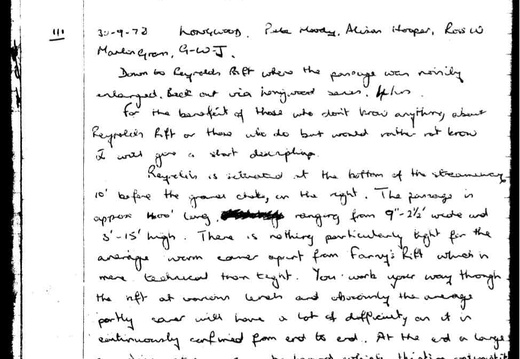 111 30-9-72 LONGWOOD. Pete Moody, Alison Hooper, Ross W
Martin Grass, G-W-J.
Down to Reynolds Rift where the passage was noisily
enlarged. Back out via Longwood series. 4 hrs.
For the benefit of those who don't know anything about
Reynolds Rift or those who do but would rather not know
I will give a short description.
Reynolds is situated at the bottom of the streamway
10' before the choke, on the right. The passage is
approx long ranging from 9"-2½' wide and
3'-15' high. There is nothing particularly tight for the
average caver apart from Fanny's Rift which is
more technical than tight. You work your way through
the rift at various levels and obviously the average
portly caver will have a lot of difficulty as it is
continuously confined from end to end. At the end a large